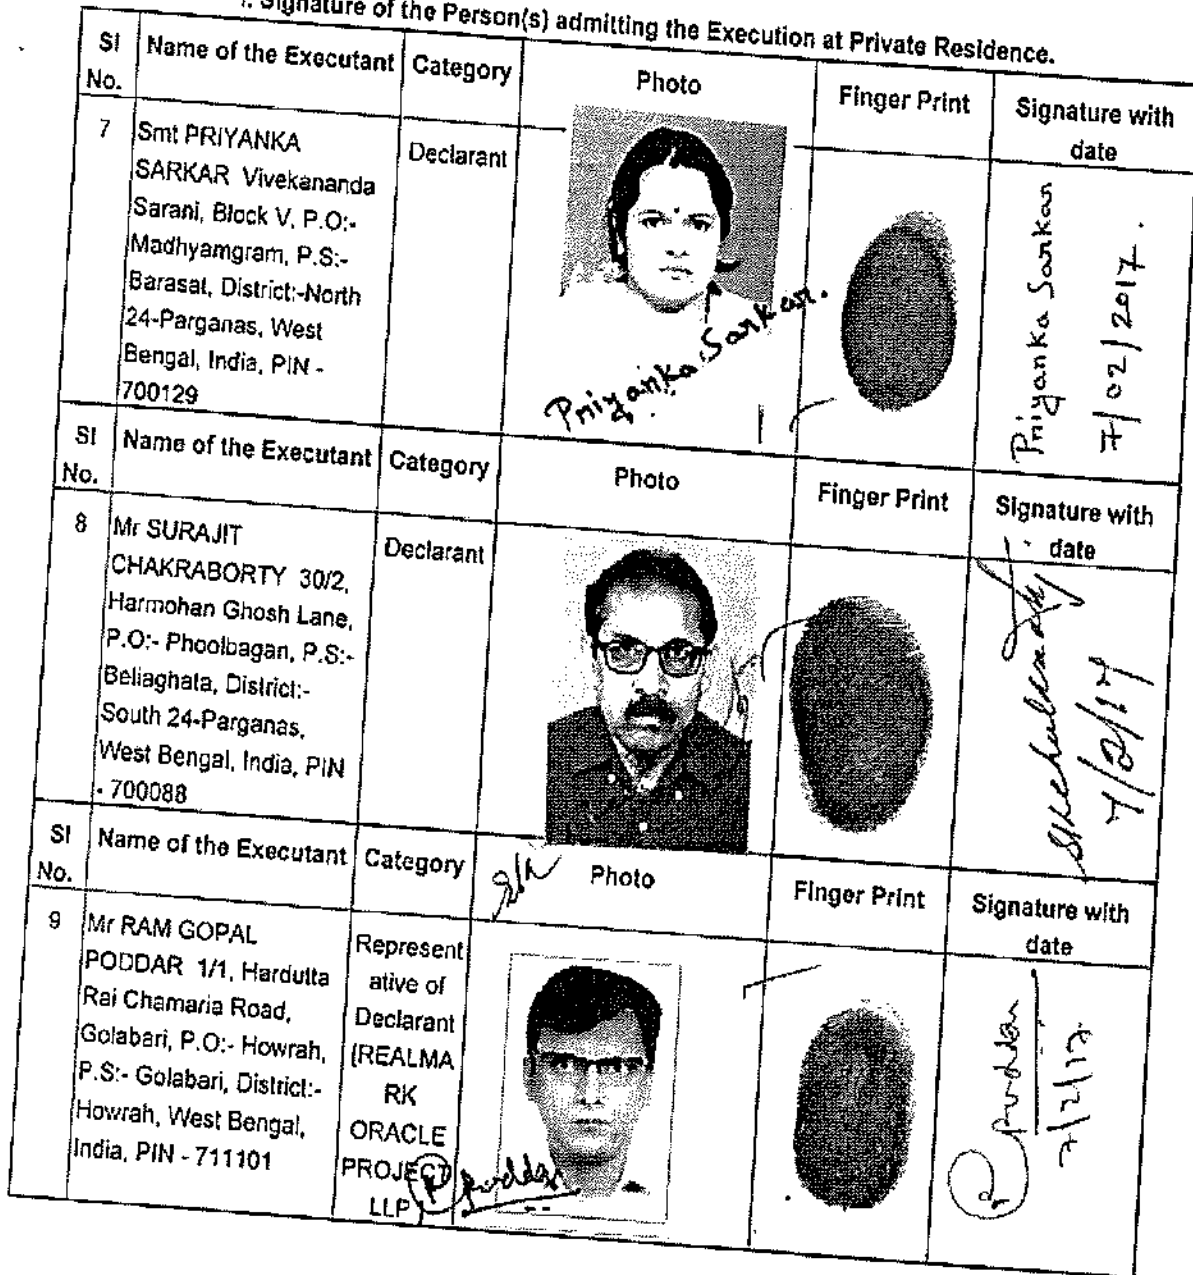 . Signature of the Person(s) admitting the Execution at Private Residence.
Sl No. Name of the Executant Category Photo Finger Print Signature with date
7
Smt PRIYANKA
SARKAR Vivekananda
Sarani, Block V, P.O:-
Madhyamgram, P.S:-
Barasat, District:-North
24-Parganas, West
Bengal, India, PIN -
700129
Declarant
Priyanka Sarkar.
Priyanka Sarkar
7/02/2017.
Sl No. Name of the Executant Category Photo Finger Print Signature with date
8
Mr SURAJIT
CHAKRABORTY 30/2,
Harmohan Ghosh Lane,
P.O:- Phoolbagan, P.S:-
Beliaghata, District:-
South 24-Parganas,
West Bengal, India, PIN
- 700088
Declarant
7/2/17
Sl No. Name of the Executant Category Photo Finger Print Signature with date
9
Mr RAM GOPAL
PODDAR 1/1, Hardutta
Rai Chamaria Road,
Golabari, P.O:- Howrah,
P.S:- Golabari, District:-
Howrah, West Bengal,
India, PIN - 711101
Represent
ative of
Declarant
[REALMA
RK
ORACLE
PROJECT
LLP ]
Poddar
Poddar
7/2/17